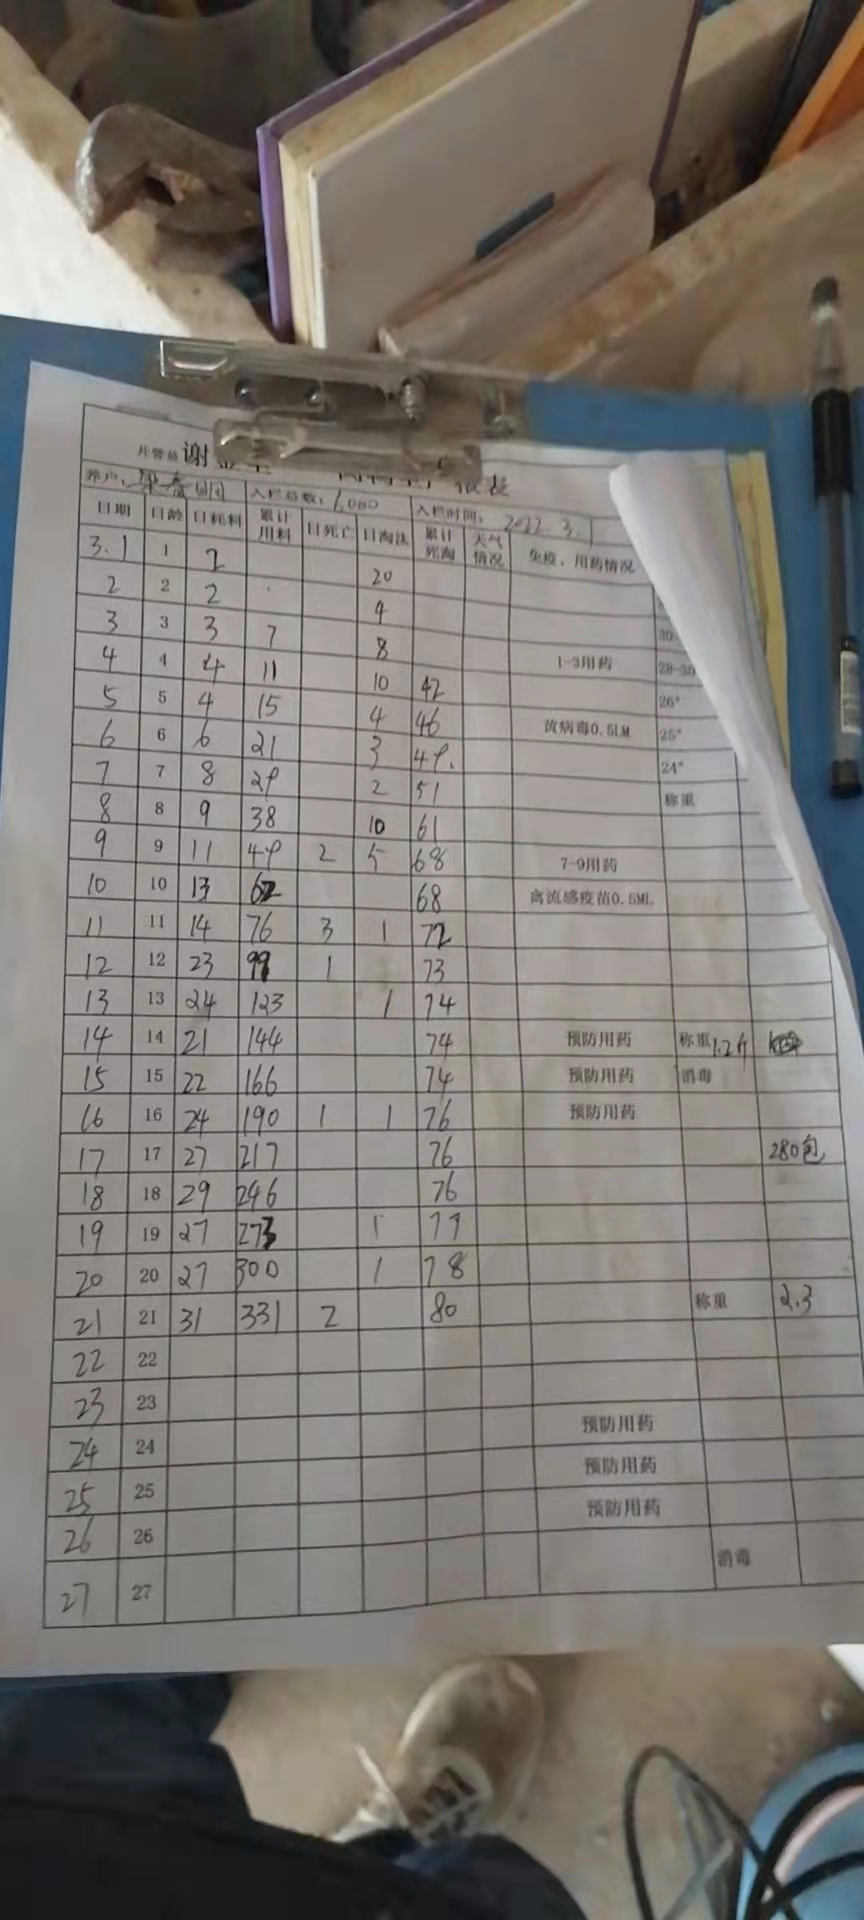 片管员 谢
报表
养户： 入栏总数：6000 入栏时间：2022.3.1
日期 日龄 日耗料 累计用料 日死亡 日淘汰 累计死淘 天气情况 免疫、用药情况
3.1 1 2 20
2 2 2 4
3 3 3 7 8 30
4 4 4 11 10 42 1-3用药 28-30
5 5 4 15 4 46 26°
6 6 6 21 3 49. 流病毒0.5LM 25°
7 7 8 29 2 51 24°
8 8 9 38 10 61 称重
9 9 11 49 2 5 68 7-9用药
10 10 13 62 68 禽流感疫苗0.5ML
11 11 14 76 3 1 72
12 12 23 99 1 73
13 13 24 123 1 74
14 14 21 144 74 预防用药 称重 1.2斤
15 15 22 166 74 预防用药 消毒
16 16 24 190 1 1 76 预防用药
17 17 27 217 76 280包
18 18 29 246 76
19 19 27 273 1 77
20 20 27 300 1 78
21 21 31 331 2 80 称重 2.3
22 22
23 23
24 24 预防用药
25 25 预防用药
26 26 预防用药
27 27 消毒